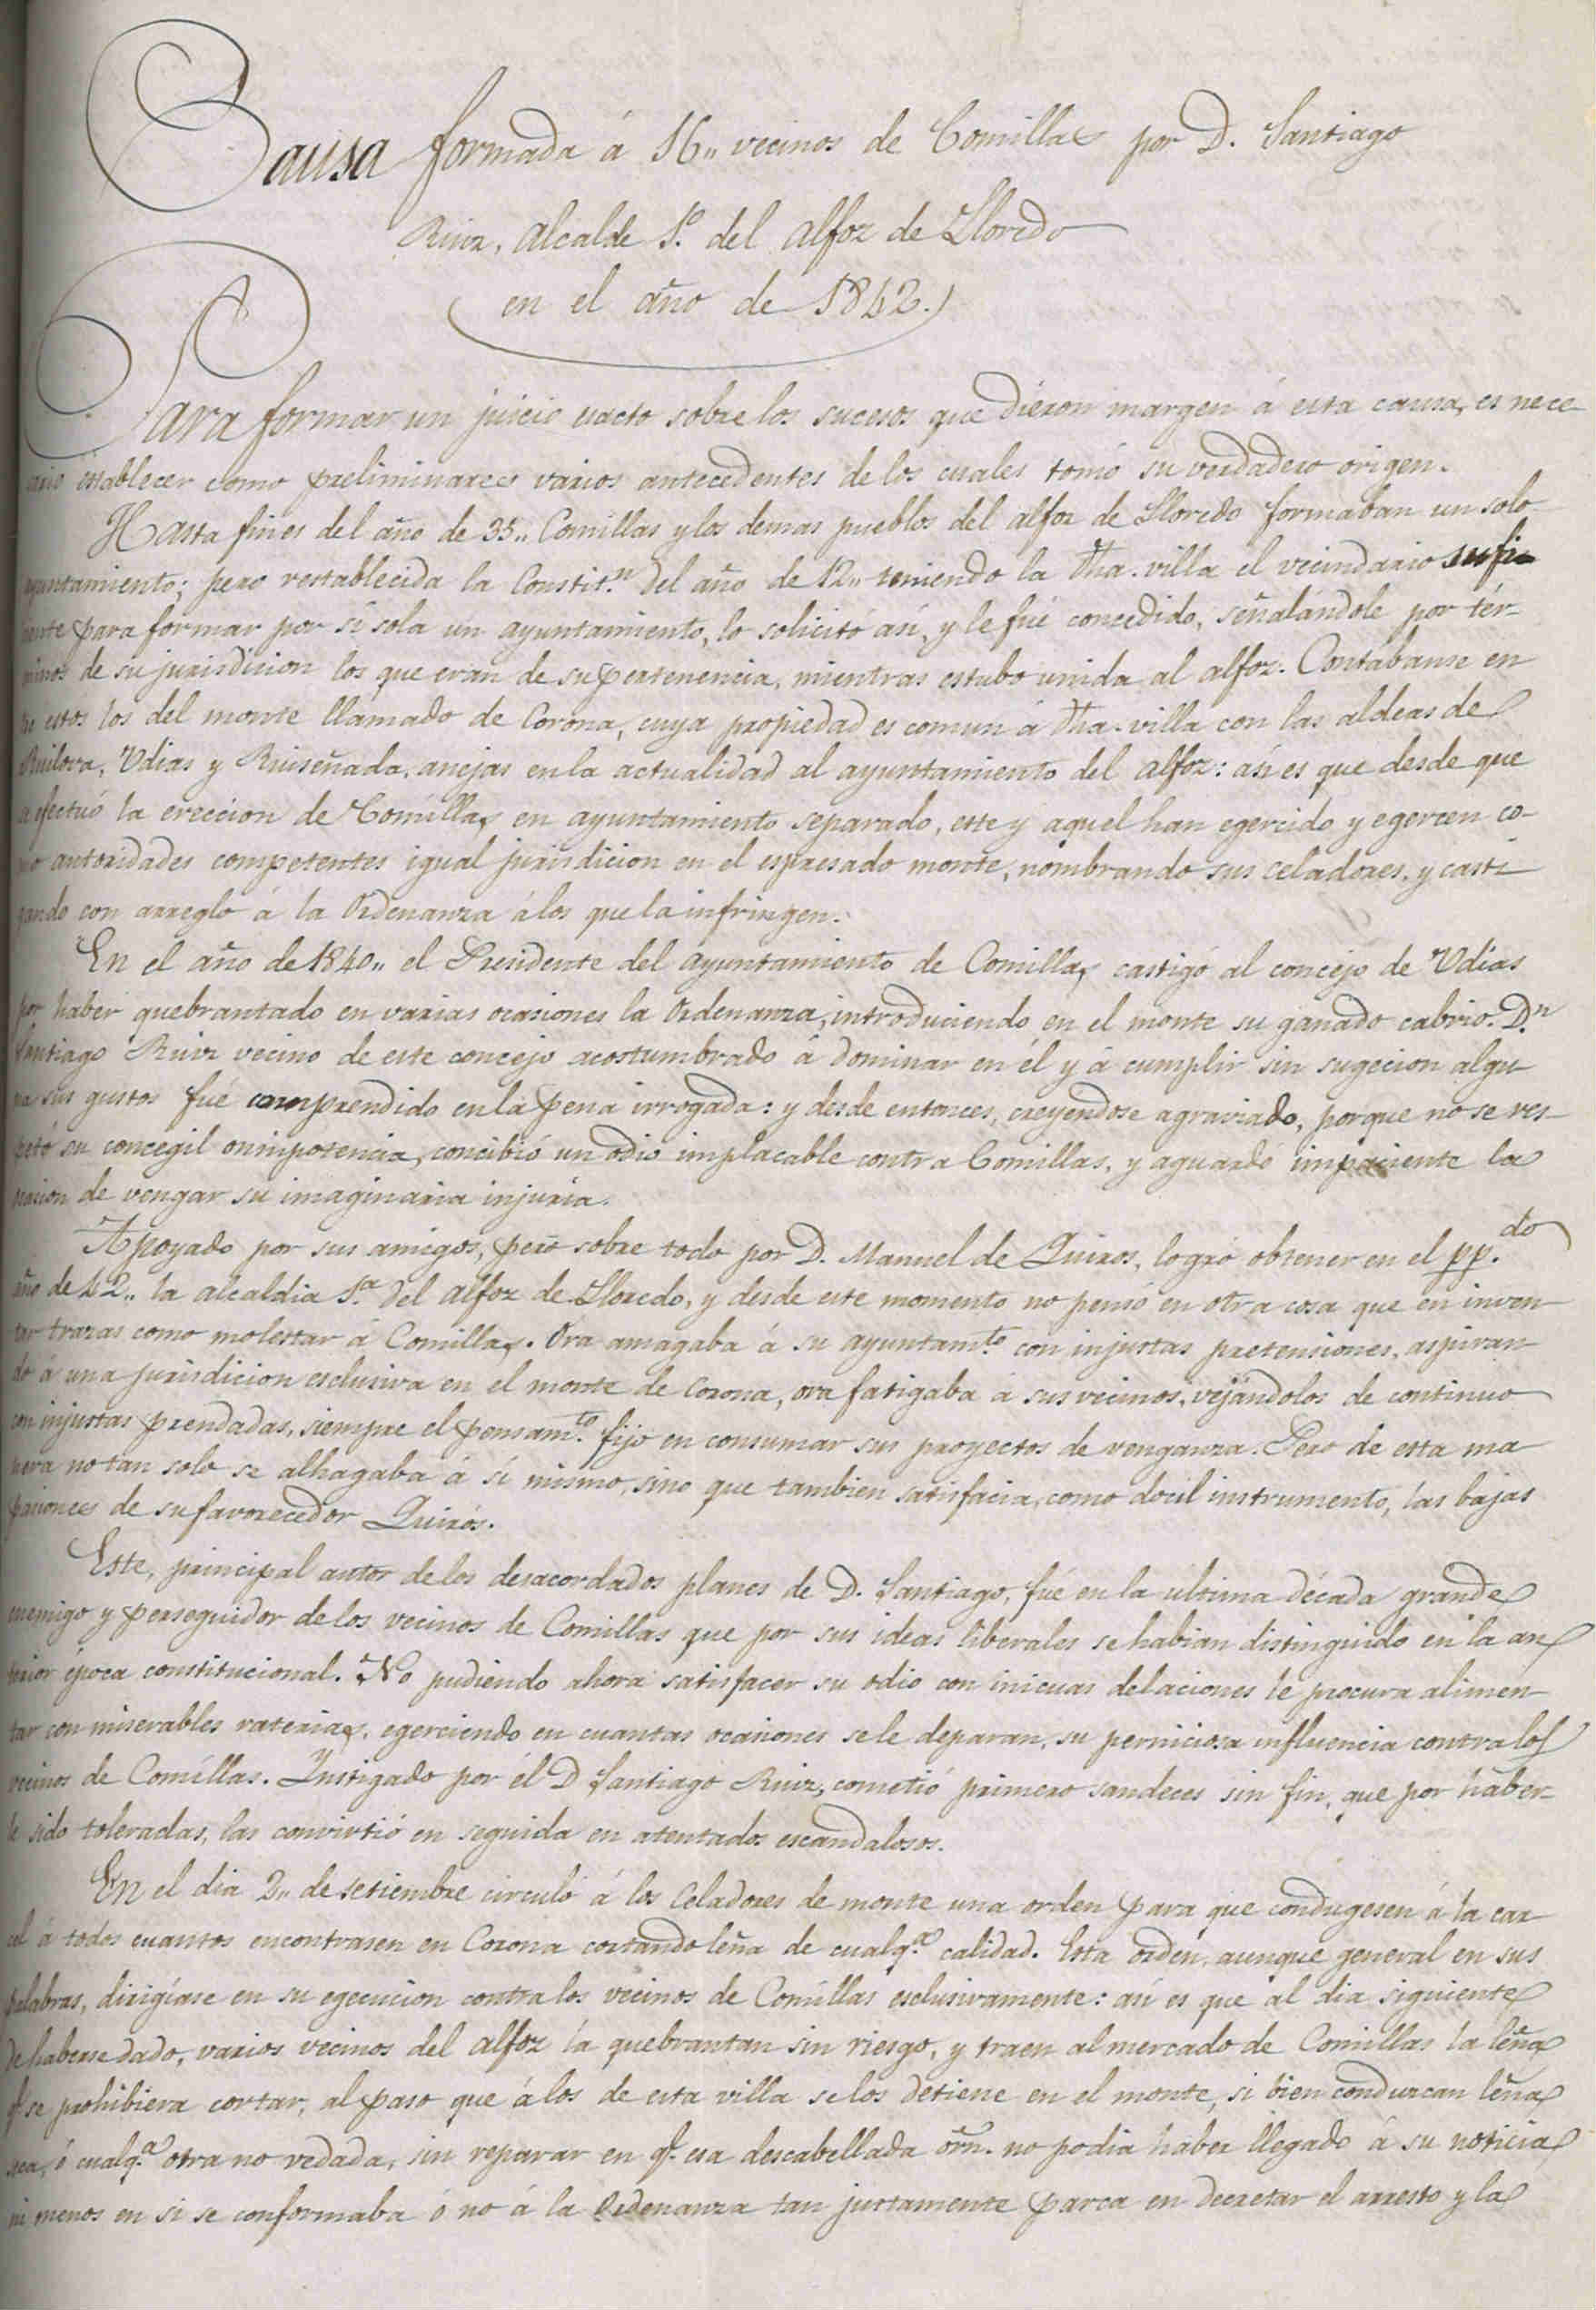 Causa formada á 16,, vecinos de Comillas por D. Santiago
Ruiz, Alcalde 1.º del alfoz de Lloredo
en el año de 1842.)
Para formar un juicio esacto sobre los sucesos que dieron margen á esta causa, es nece
ario establecer como preliminares varios antecedentes de los cuales tomó su verdadero origen.
Hasta fines del año de 35,, Comillas y los demas pueblos del alfoz de Lloredo formaban un solo
ayuntamiento; pero restablecida la Constit.n del año de 12,, teniendo la dha. villa el vecindario sufi-
ciente para formar por sí sola un ayuntamiento, lo solicitó así, y le fué concedido, señalándole por tér-
minos de su jurisdicion los que eran de su pertenencia, mientras estubo unida al alfoz. Contábanse en
tre estos los del monte llamado de Corona, cuya propiedad es comun á dha. villa con las aldeas de
Ruilova, Udias y Ruiseñada, anejas en la actualidad al ayuntamiento del alfoz: así es que desde que
se efectuó la ereccion de Comillas en ayuntamiento separado, este y aquel han egercido y egercen co-
mo autoridades competentes igual jurisdicion en el espresado monte, nombrando sus celadores, y casti
gando con arreglo á la Ordenanza á los que la infringen.
En el año de 1840,, el Presidente del ayuntamiento de Comillas castigó al concejo de Udias
por haber quebrantado en varias ocasiones la Ordenanza, introduciendo en el monte su ganado cabrio. D.n
Santiago Ruiz vecino de este concejo acostumbrado á dominar en él y á cumplir sin sugecion algu
na sus gustos fué comprendido en la pena irrogada: y desde entonces, creyendose agraviado, porque no se res-
petó su concegil onipotencia, concibió un odio implacable contra Comillas, y aguardó impaciente la
ocasion de vengar su imaginaria injuria.
Apoyado por sus amigos, pero sobre todo por D. Manuel de Quiros, logró obtener en el pp.do
año de 42,, la alcaldia 1.ª del alfoz de Lloredo, y desde este momento no pensó en otra cosa que en inven
tar trazas como molestar á Comillas. Ora amagaba á su ayuntam.to con injustas pretensiones, aspiran
do á una jurisdicion esclusiva en el monte de Corona, ora fatigaba á sus vecinos, vejándolos de continuo
con injustas prendadas, siempre el pensam.to fijo en consumar sus proyectos de venganza. Pero de esta ma
nera no tan solo se alhagaba á sí mismo, sino que tambien satisfacia, como docil instrumento, las bajas
pasiones de su favorecedor Quirós.
Este, principal autor de los desacordados planes de D. Santiago, fué en la ultima década grande
enemigo y perseguidor de los vecinos de Comillas que por sus ideas liberales se habian distinguido en la an
terior época constitucional. No pudiendo ahora satisfacer su odio con inicuas delaciones le procura alimen-
tar con miserables raterias, egerciendo en cuantas ocasiones se le deparan, su perniciosa influencia contra los
vecinos de Comillas. Instigado por él D Santiago Ruiz, cometió primero sandeces sin fin, que por haber-
le sido toleradas, las convirtió en seguida en atentados escandalosos.
En el dia 2,, de setiembre circuló á los Celadores de monte una orden para que condugesen á la car
cel á todos cuantos encontrasen en Corona cortando leña de cualq.ª calidad. Esta orden, aunque general en sus
palabras, dirigíase en su egecucion contra los vecinos de Comillas esclusivamente: así es que al dia siguiente
de haberse dado, varios vecinos del alfoz la quebrantan sin riesgo, y traen al mercado de Comillas la leña
q.e se prohibiera cortar, al paso que á los de esta villa se los detiene en el monte, si bien conduzcan leña
seca, ó cualq.ª otra no vedada, sin reparar en q.e esa descabellada orn. no podia haber llegado á su noticia
ni menos en si se conformaba ó no á la Ordenanza tan justamente parca en decretar el arresto y la